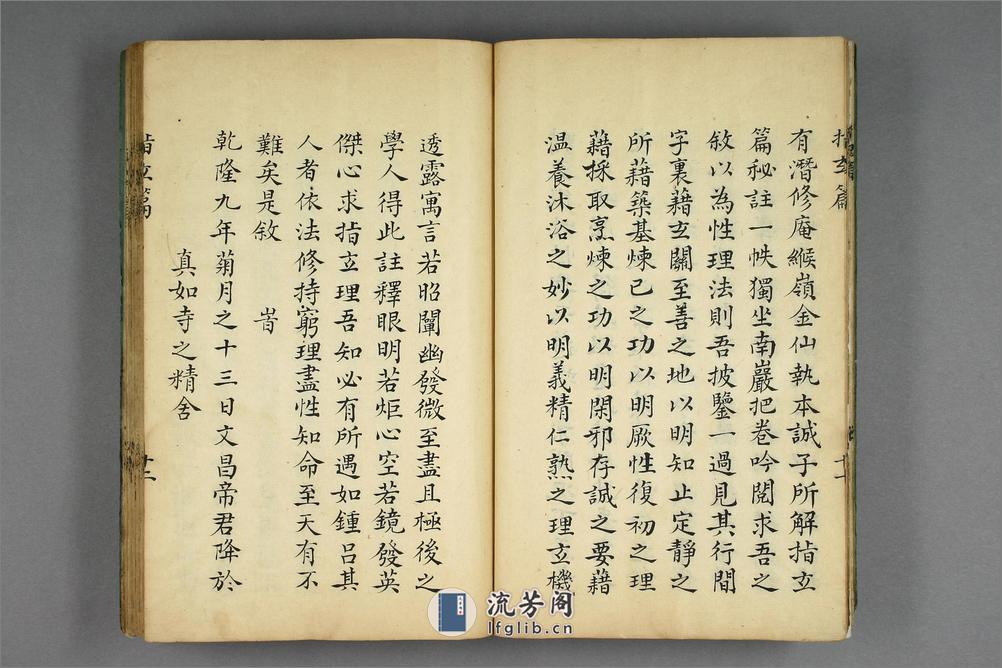 指玄篇
有潛修庵緱嶺金仙執本誠子所解指玄
篇秘註一帙獨坐南巖把卷吟閱求吾之
敘以為性理法則吾披鑒一過見其行間
字裏藉玄關至善之地以明知止定靜之
所藉築基煉己之功以明厥性復初之理
藉採取烹煉之功以明閑邪存誠之要藉
温養沐浴之妙以明義精仁熟之理玄機
透露寓言若昭闡幽發微至盡且極後之
學人得此註釋眼明若炬心空若鏡發英
傑心求指玄理吾知必有所遇如鍾呂其
人者依法修持窮理盡性知命至天有不
難矣是敘
旹
乾隆九年菊月之十三日文昌帝君降於
真如寺之精舍
指玄篇
十二
流芳阁
lfglib.cn